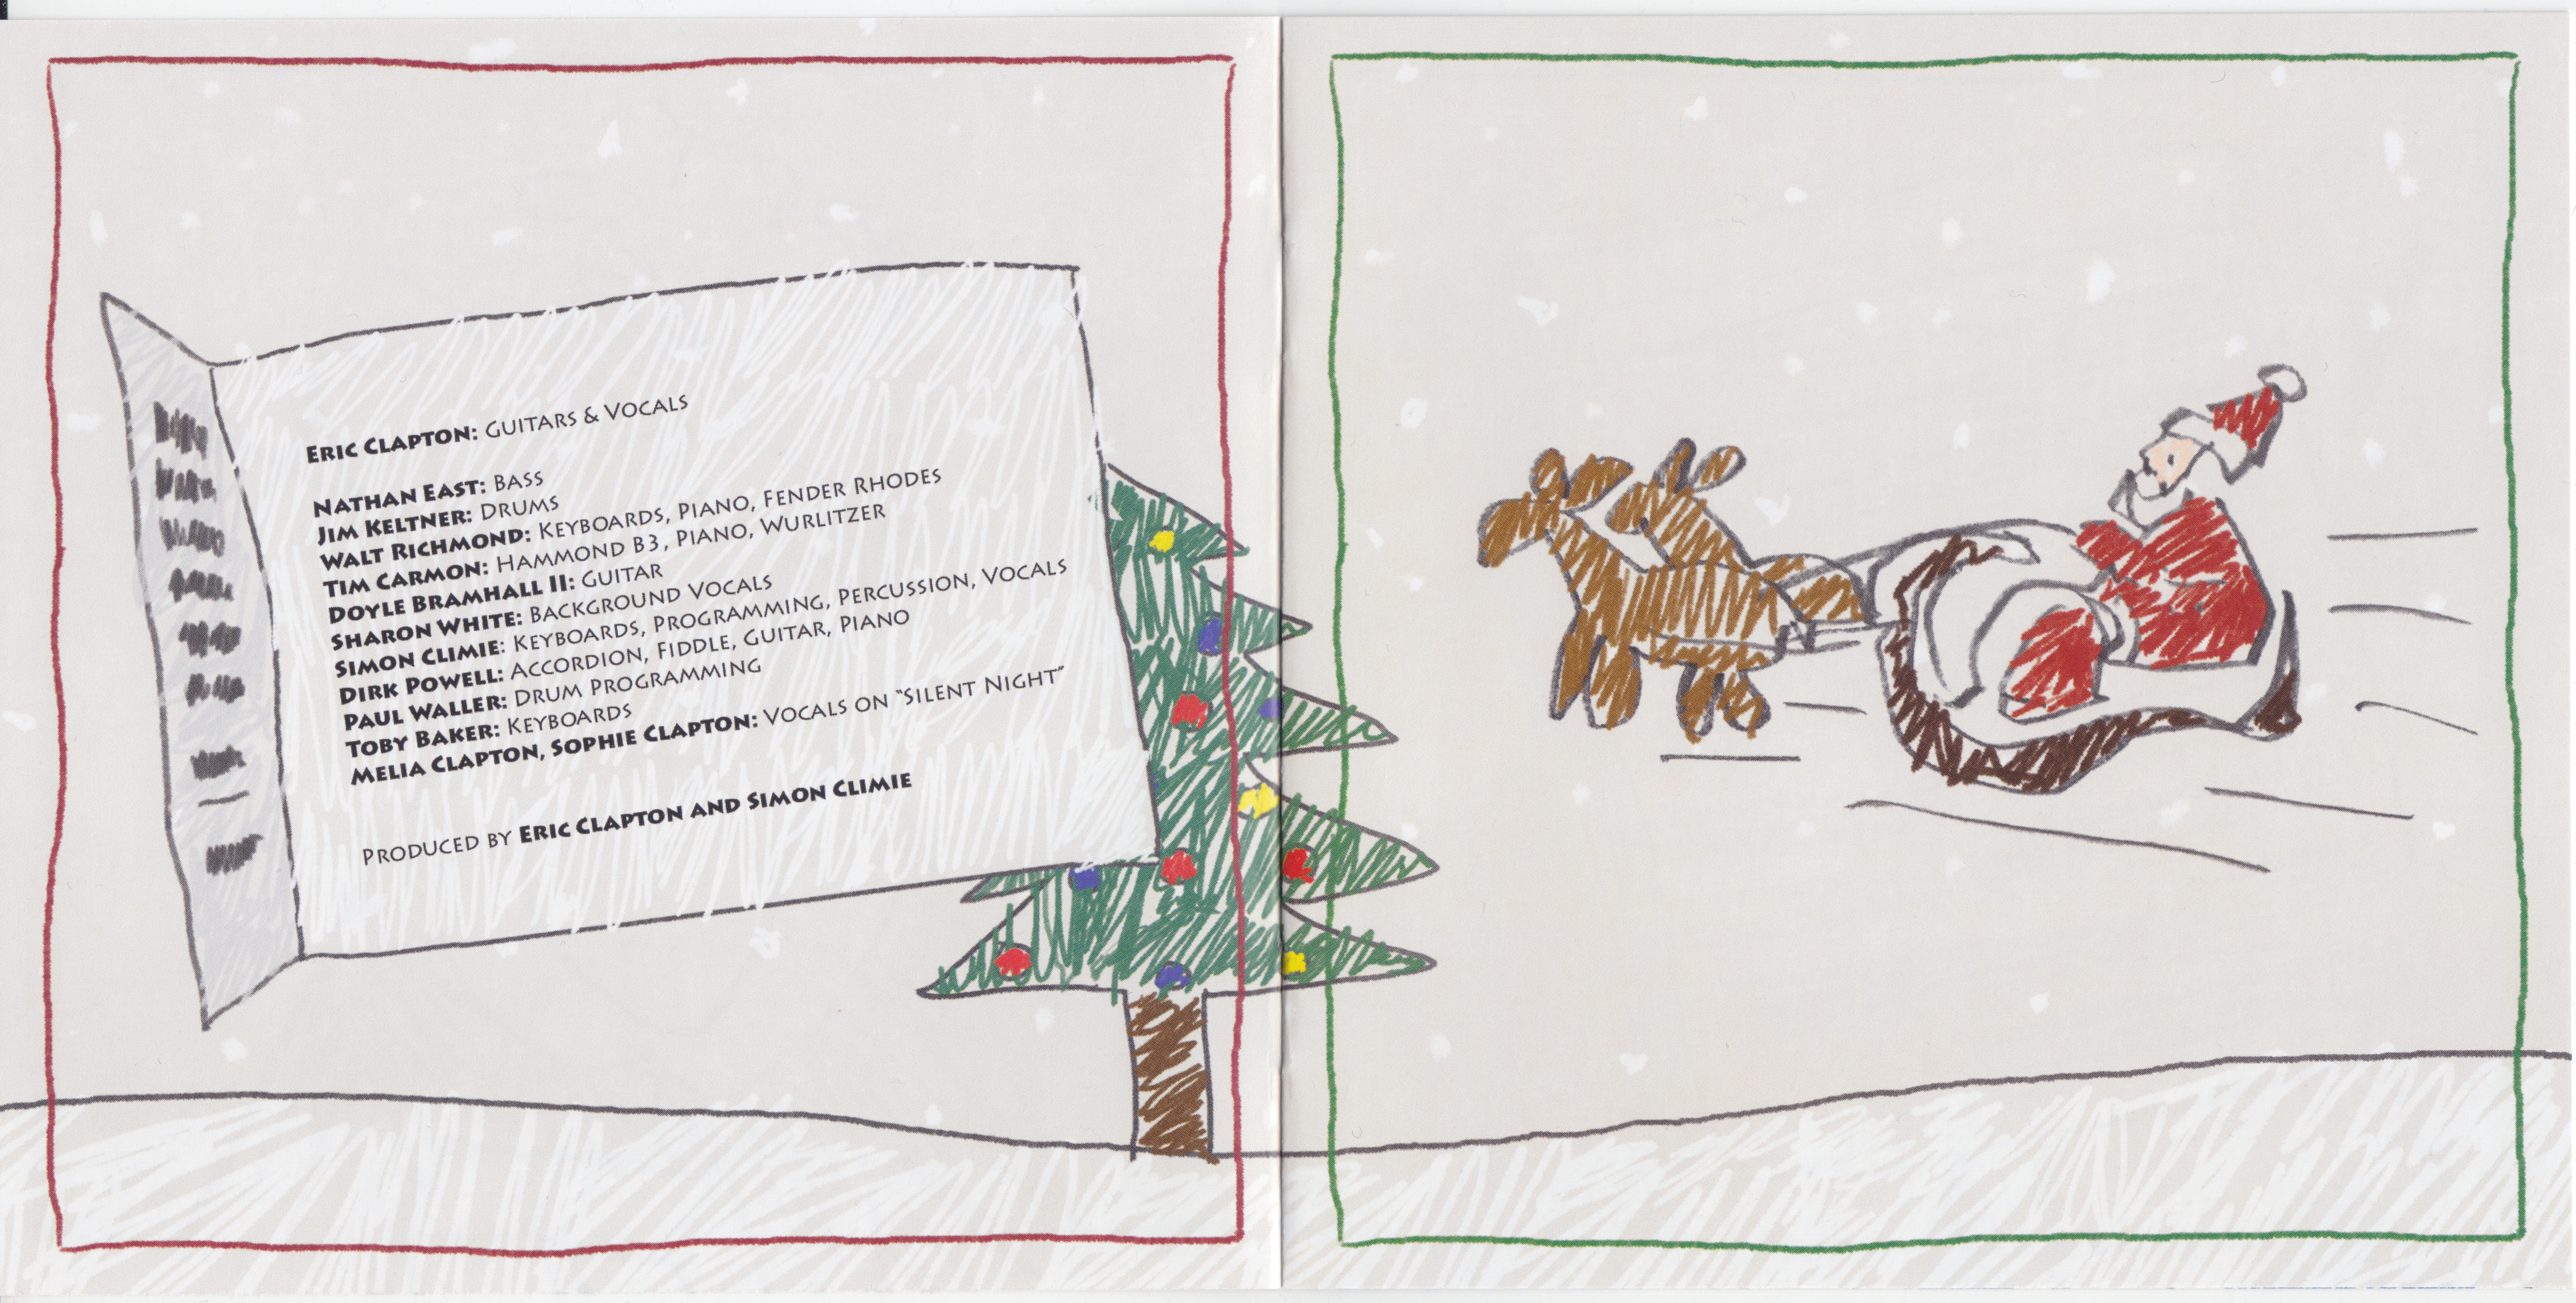 Eric Clapton: Guitars & Vocals
Nathan East: Bass
Jim Keltner: Drums
Walt Richmond: Keyboards, Piano, Fender Rhodes
Tim Carmon: Hammond B3, Piano, Wurlitzer
Doyle Bramhall II: Guitar
Sharon White: Background Vocals
Simon Climie: Keyboards, Programming, Percussion, Vocals
Dirk Powell: Accordion, Fiddle, Guitar, Piano
Paul Waller: Drum Programming
Toby Baker: Keyboards
Melia Clapton, Sophie Clapton: Vocals on "Silent Night"
Produced by Eric Clapton and Simon Climie